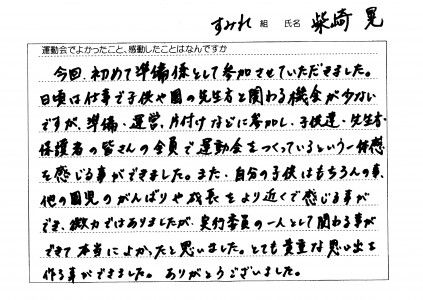 すみれ 組 氏名 柴崎 晃
運動会でよかったこと、感動したことはなんですか
今回、初めて準備係として参加させていただきました。
日頃は仕事で子供や園の先生方と関わる機会が少ない
ですが、準備・運営、片付けなどに参加し、子供達・先生方・
保護者の皆さんの全員で運動会をつくっているという一体感
を感じる事ができました。また、自分の子供はもちろんの事、
他の園児のがんばりや成長をより近くで感じる事が
でき、微力ではありましたが、実行委員の一人として関わる事が
できて本当によかったと思いました。とても貴重な思い出を
作る事ができました。ありがとうございました。